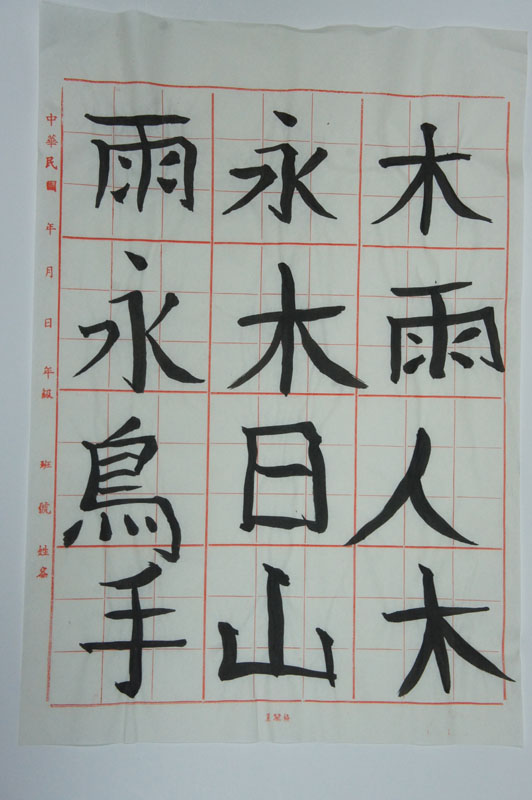 木雨人木
永木日山
雨永鳥手
中華民國 年 月 日 年級 班 號 姓名